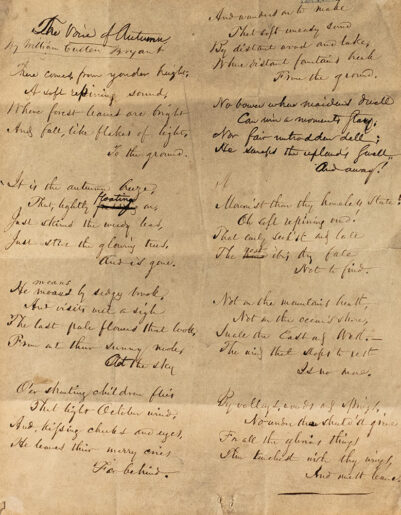 The Voice of Autumn
By William Cullen Bryant
There comes, from yonder height,
A soft repining sound,
Where forest leaves are bright
And fall, like flakes of light,
To the ground.
It is the autumn breeze,
That, lightly floating on,
Just skims the weedy leas,
Just stirs the glowing trees,
And is gone.
He moans by sedgy brook,
means
And visits with a sigh
The last pale flowers that look,
From out their sunny nook,
At the sky
O'er shouting children flies
That light October wind,
And, kissing cheeks and eyes,
He leaves their merry cries
Far behind.
And wanders on to make
That soft uneasy sound
By distant wood and lake,
Where distant fountains break
From the ground.
No bower where maidens dwell
Can win a moments stay;
Nor fair untrodden dell;
He sweeps the upland's swell
And away!
Mourn'st thou thy homeless state?
Oh soft repining wind!
That early seek'st and late
The rest it is thy fate
Not to find.
Not on the mountain's breath,
Not on the ocean's shore,
In all the East and West. —
The wind that stops to rest
Is no more.
By valleys, woods and springs,
No wonder thou should'st grieve
For all the glorious things
Thou touchest with thy wings,
And must leave.